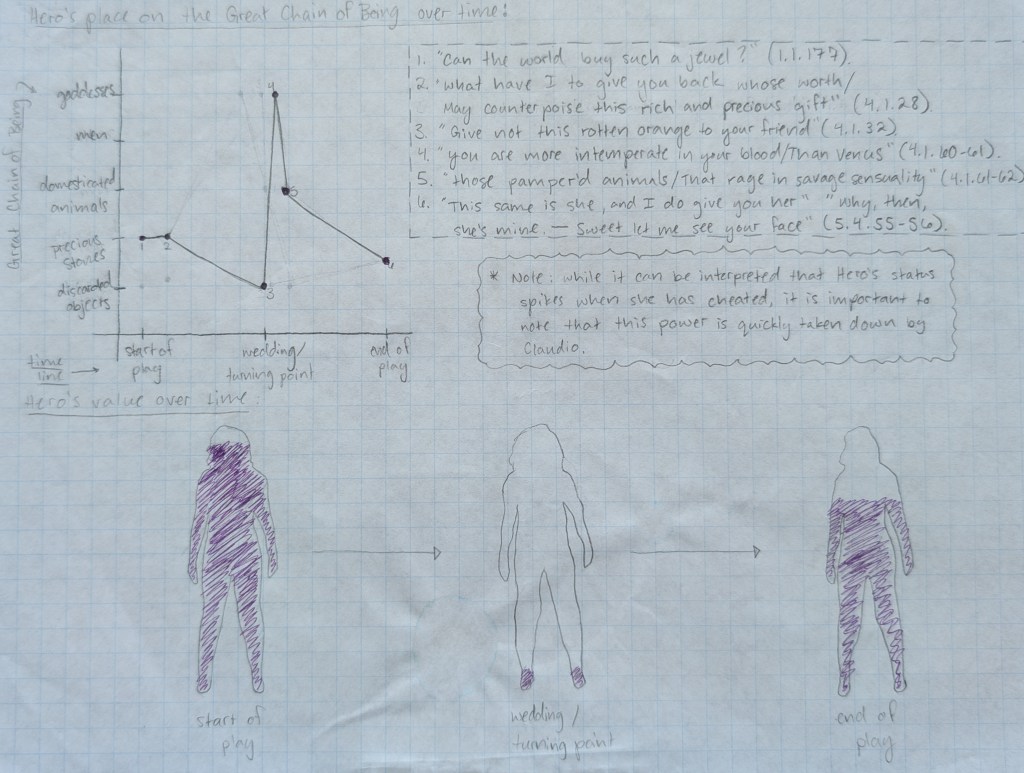 Hero's place on the Great Chain of Being over time:
Great Chain of Being
goddesses
men
domesticated
animals
precious
stones
discarded
objects
1
2
3
4
5
6
time
line
start of
play
wedding/
turning point
end of
play
1. "Can the world buy such a jewel?" (1.1.177).
2. "what have I to give you back whose worth/
May counterpoise this rich and precious gift" (4.1.28).
3. "Give not this rotten orange to your friend" (4.1.32)
4. "you are more intemperate in your blood/Than Venus" (4.1.60-61).
5. "those pamper'd animals/That rage in savage sensuality" (4.1.61-62)
6. "This same is she, and I do give you her" "why, then,
she's mine. — Sweet let me see your face" (5.4.55-56).
* Note: while it can be interpreted that Hero's status
spikes when she has cheated, it is important to
note that this power is quickly taken down by
Claudio.
Hero's value over time:
start of
play
wedding/
turning point
end of
play